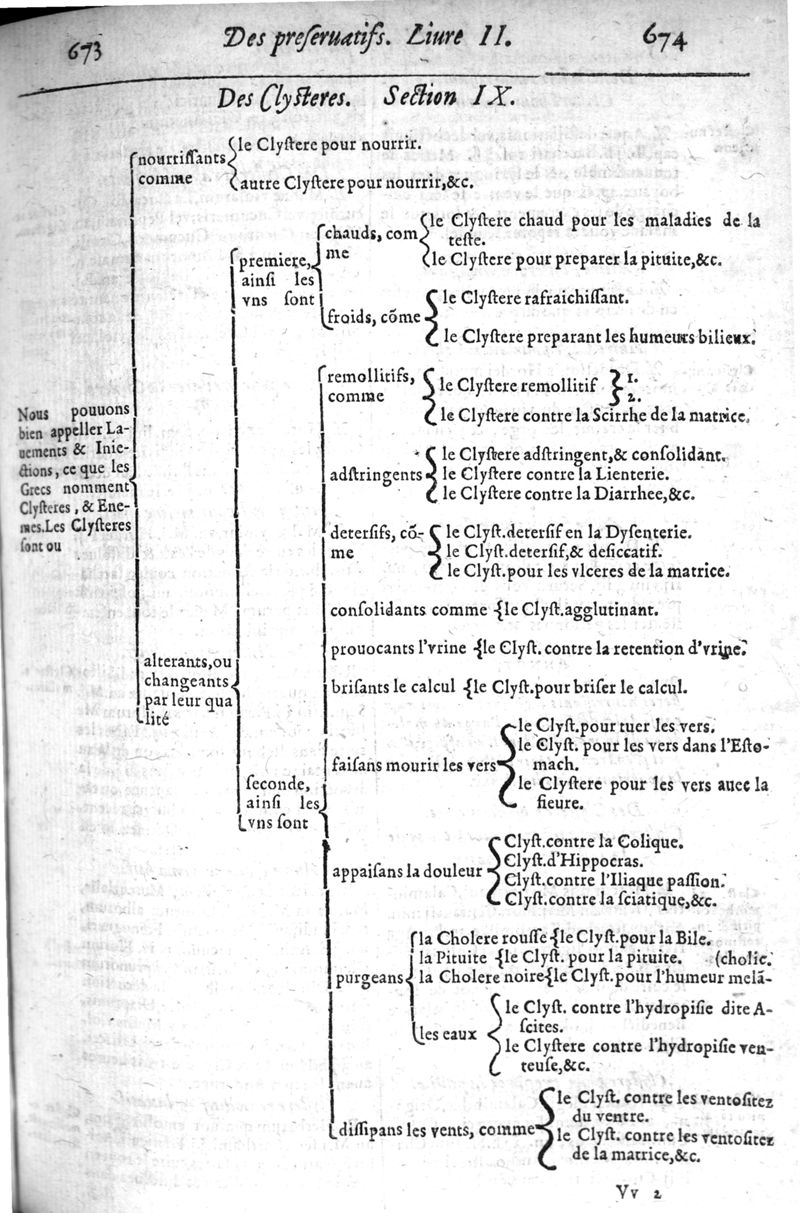 673
Des preseruatifs. Liure II.
674
Des Clysteres. Section IX.
Nous pouuons
bien appeller La-
uements & Inie-
ctions, ce que les
Grecs nomment
Clysteres, & Ene-
mes. Les Clysteres
sont ou
nourrissants
comme
le Clystere pour nourrir.
autre Clystere pour nourrir, &c.
alterants, ou
changeants
par leur qua
lité
premiere,
ainsi les
vns sont
chauds, com
me
le Clystere chaud pour les maladies de la
teste.
le Clystere pour preparer la pituite, &c.
froids, cõme
le Clystere rafraichissant.
le Clystere preparant les humeurs bilieux.
seconde,
ainsi les
vns sont
remollitifs,
comme
le Clystere remollitif 1.
2.
le Clystere contre la Scirrhe de la matrice.
adstringents
le Clystere adstringent, & consolidant.
le Clystere contre la Lienterie.
le Clystere contre la Diarrhee, &c.
detersifs, cõ-
me
le Clyst. detersif en la Dysenterie.
le Clyst. detersif, & desiccatif.
le Clyst. pour les vlceres de la matrice.
consolidants comme {le Clyst. agglutinant.
prouocants l'vrine {le Clyst. contre la retention d'vrine.
brisants le calcul {le Clyst. pour briser le calcul.
faisans mourir les vers
le Clyst. pour tuer les vers.
le Clyst. pour les vers dans l'Esto-
mach.
le Clystere pour les vers auec la
fieure.
appaisans la douleur
Clyst. contre la Colique.
Clyst. d'Hippocras.
Clyst. contre l'Iliaque passion.
Clyst. contre la sciatique, &c.
purgeans
la Cholere rousse {le Clyst. pour la Bile.
la Pituite {le Clyst. pour la pituite. (cholic.
la Cholere noire {le Clyst. pour l'humeur melã-
les eaux
le Clyst. contre l'hydropisie dite A-
scites.
le Clystere contre l'hydropisie ven-
teuse, &c.
dissipans les vents, comme
le Clyst. contre les ventositez
du ventre.
le Clyst. contre les ventositez
de la matrice, &c.
Vv 2